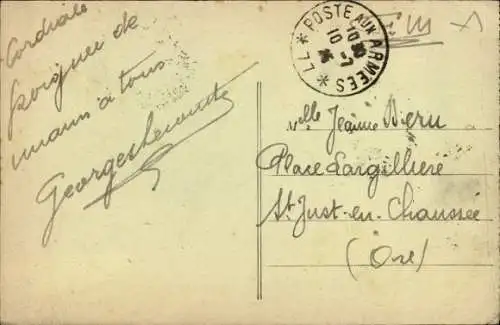 Cordiale
poignée de
mains à tous
Georges
* POSTE AUX ARMEES *
10
F M
Mlle Jeanne Beru
Place Largilliere
St Just-en-Chaussée
(Oise)